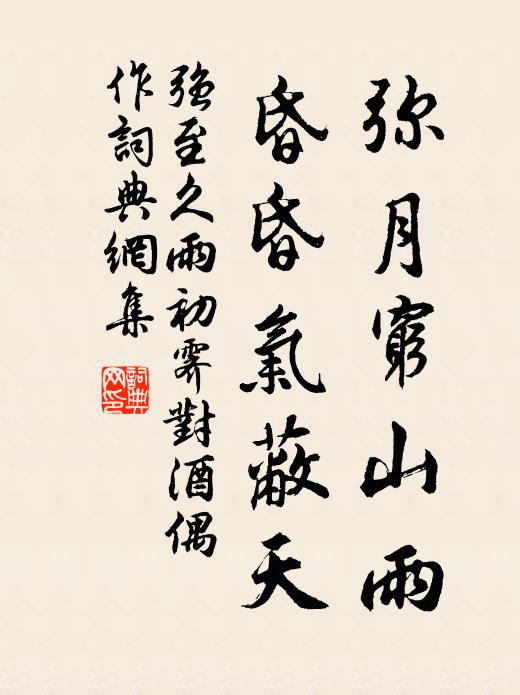 弥月窮山雨
昏昏氣蔽天
強至久雨初霽對酒偶
作詞典網集
詞典網印